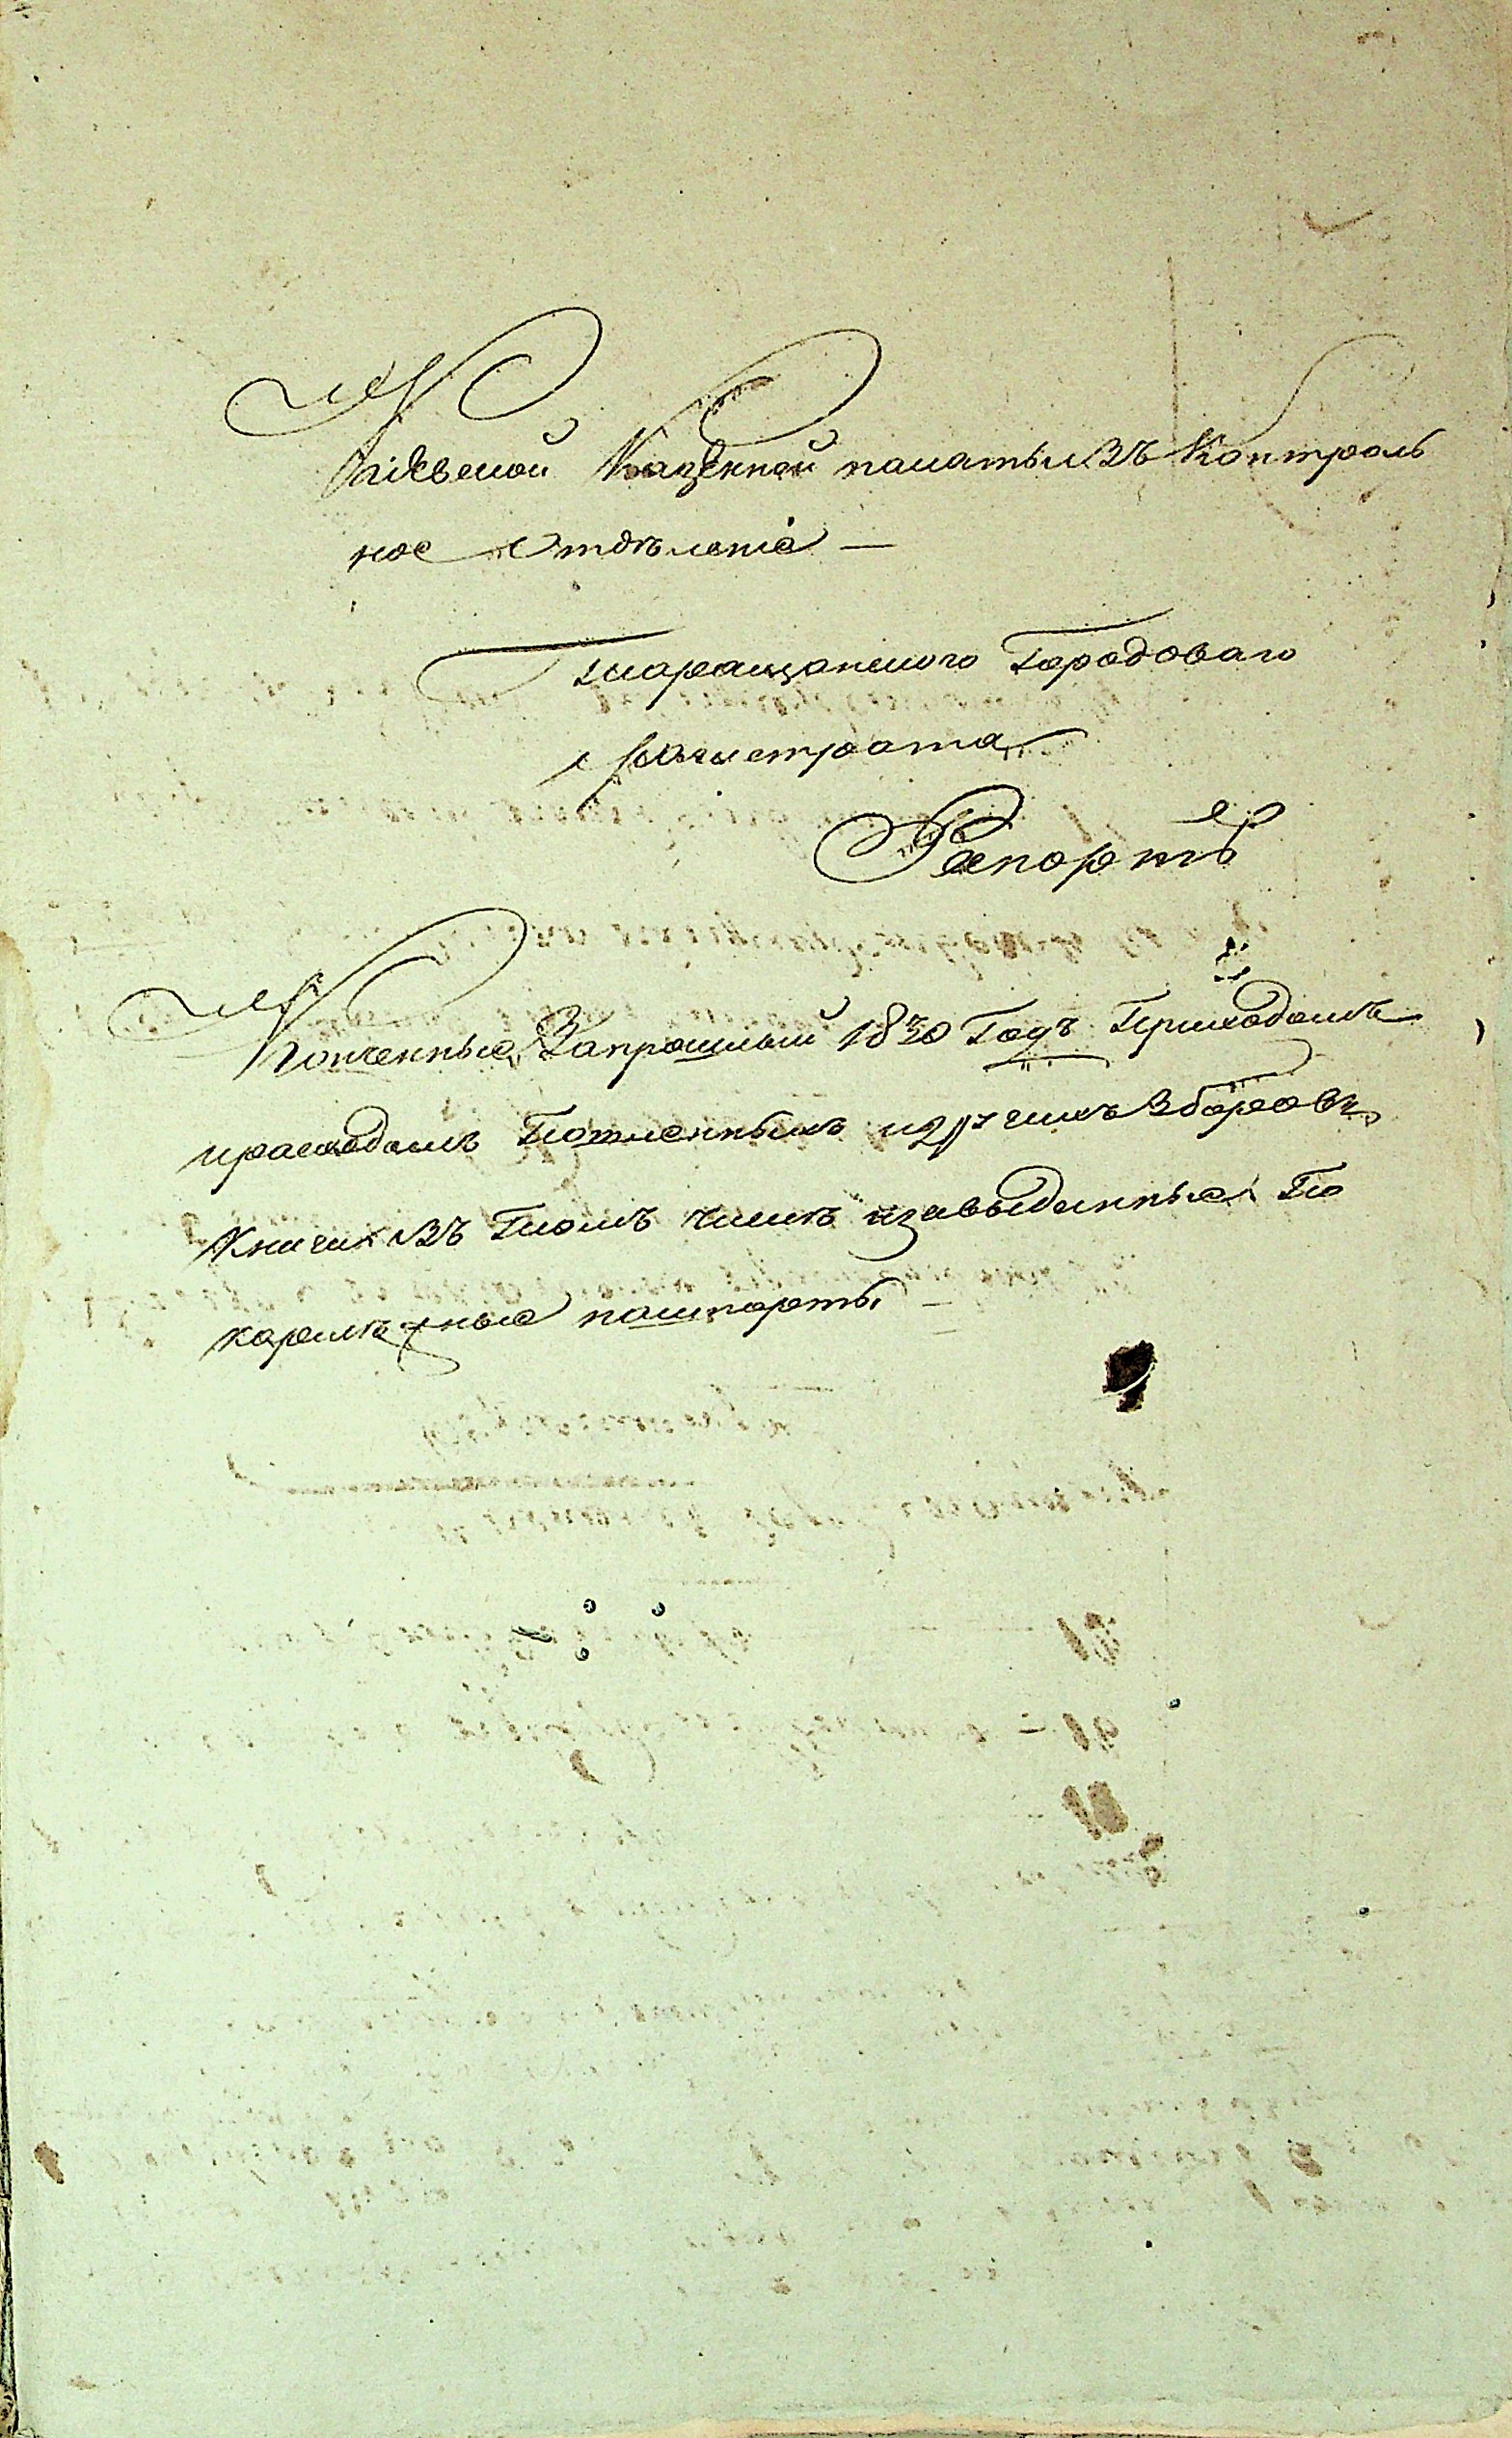 Кіевской Казенной палаты въ Контроль
ное Отдѣленіе —
Таращанского Городоваго
Магистрата
Рапортъ
Конченные Запрошлый 1830 Годъ Приходомъ
ирасходомъ Поженныхъ идругихъ Зборовъ
Книги въ Томъ числѣ изавыданные По
кормѣжные пашпорты —